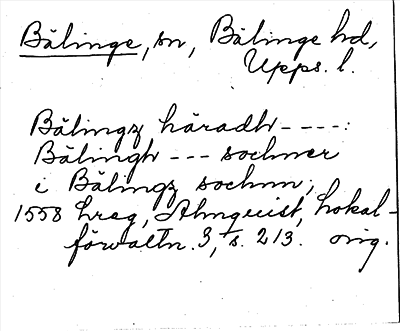 Bälinge, sn, Bälinge hd,
Upps. l.
Bälingz häradh ----:
Bälingh --- sochner
i Bälingz sochnn;
1558 hreg, Almquist, Lokal-
förvaltn. 3, s. 213. orig.